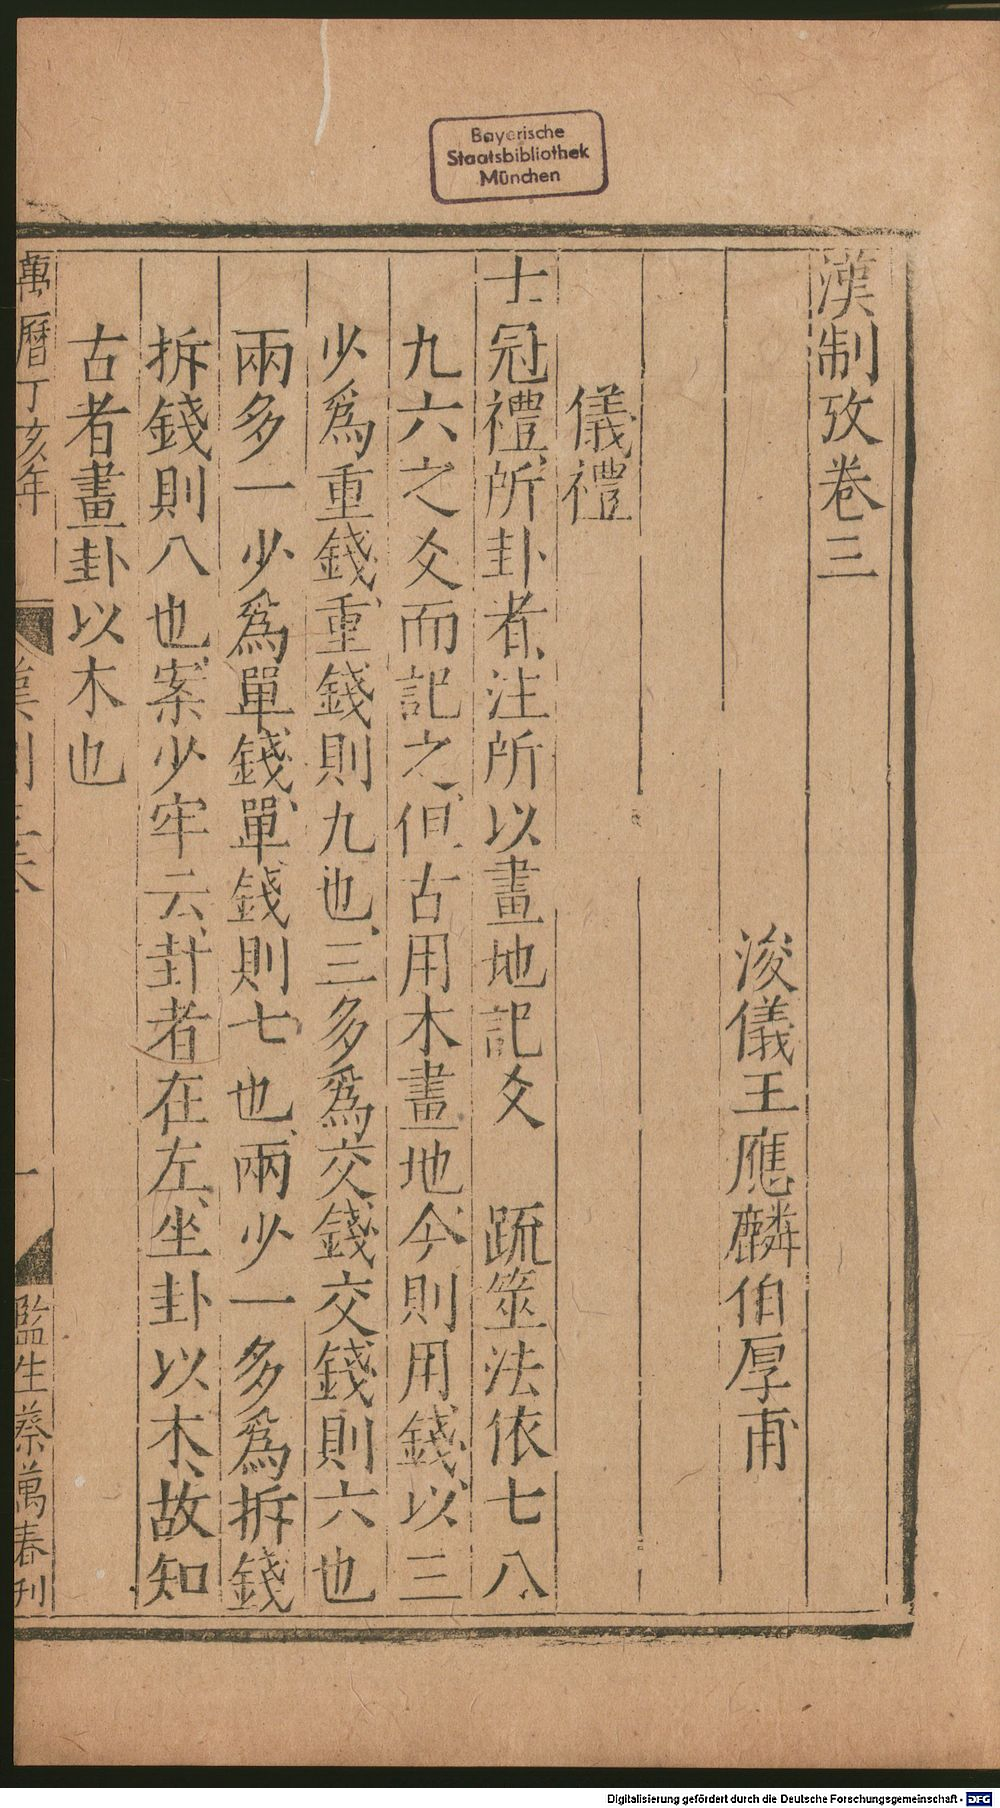 Bayerische
Staatsbibliothek
München
漢制攷卷三
浚儀王應麟伯厚甫
儀禮
士冠禮所卦者注所以畫地記爻　疏筮法依七八
九六之爻而記之但古用木畫地今則用錢以三
少爲重錢重錢則九也三多爲交錢交錢則六也
兩多一少爲單錢單錢則七也兩少一多爲拆錢
拆錢則八也案少牢云卦者在左坐卦以木故知
古者畫卦以木也
萬曆丁亥年
一
監生蔡萬春刊
Digitalisierung gefördert durch die Deutsche Forschungsgemeinschaft - DFG